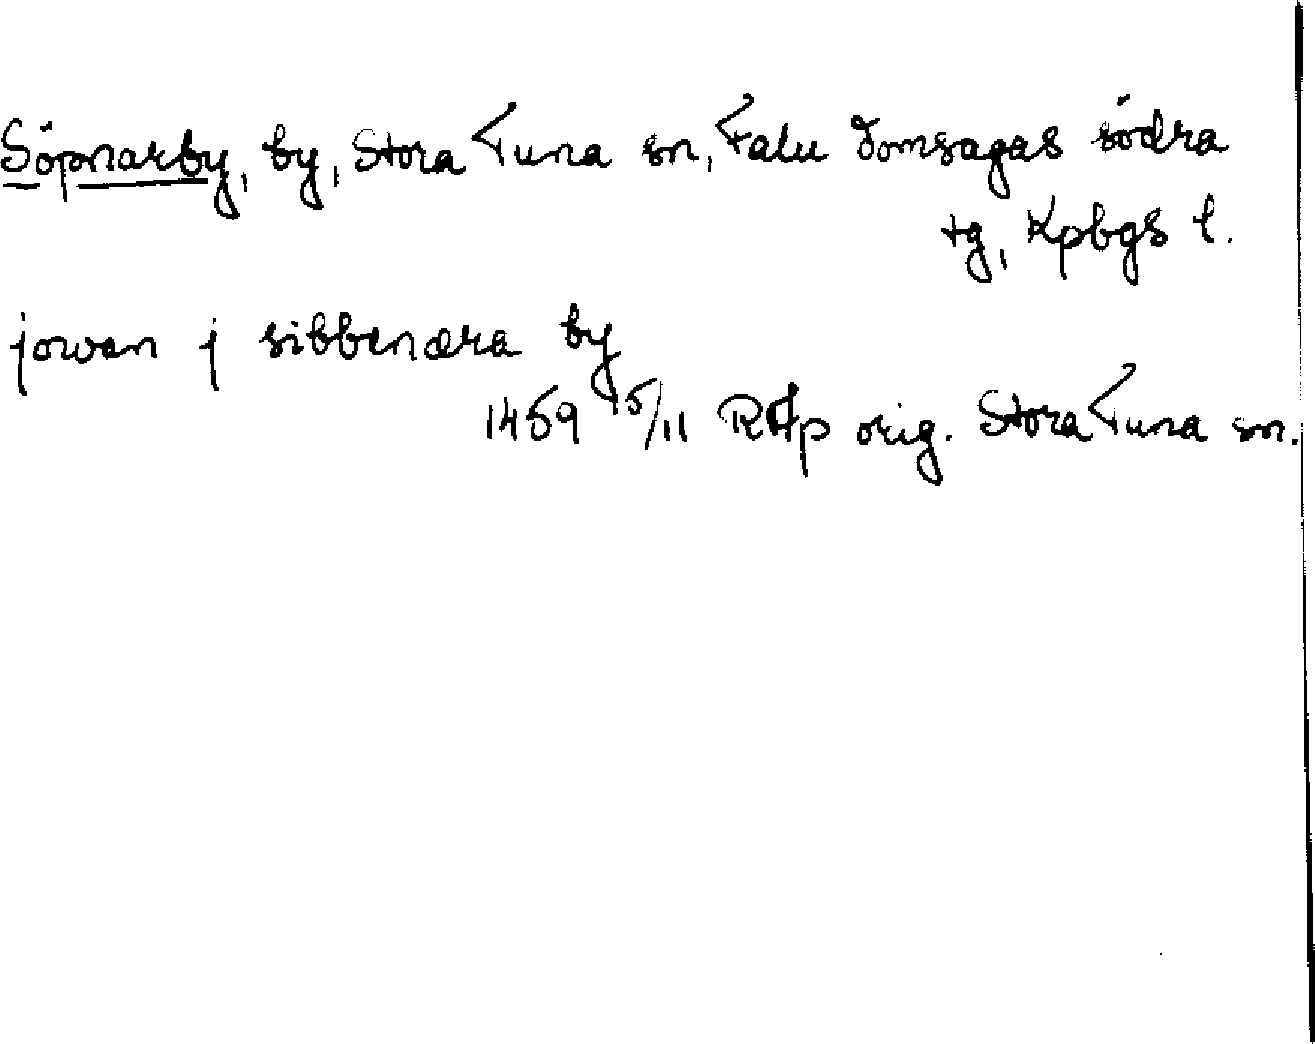 Söpnarby, by, Stora Tuna sn, Falu Domsagas södra
tg, Kpbgs l.
jowan j sibbenæra by
1459 15/11 RAp orig. Stora Tuna sn.